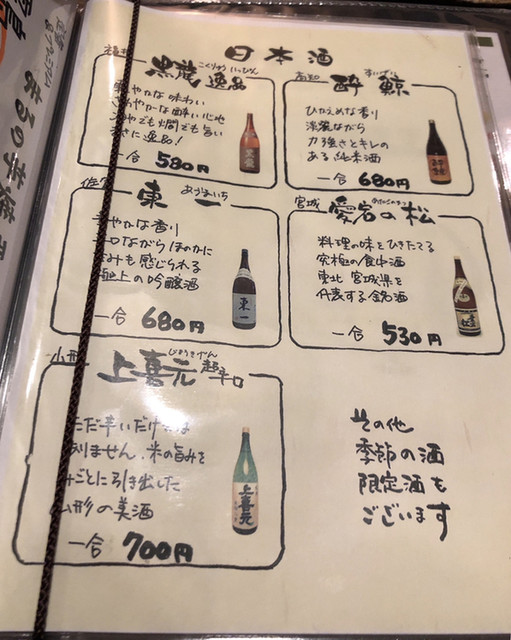 日本酒
こくりゅう いっぴん
黒龍 逸品
やかな味わい
やかな酔い心地
でも燗でも旨い
さに逸品!
一合 580円
高知
すいげい
酔鯨
ひかえめな香り
淡麗ながら
力強さとキレの
ある純米酒
一合 680円
佐
あづまいち
東一
やかな香り
口ながらほのかに
みも感じられる
上の吟醸酒
一合 680円
宮城
愛宕の松
料理の味をひきたてる
究極の食中酒
東北 宮城県を
代表する銘酒
一合 530円
山形
じょうきげん
上喜元 超辛口
ただ辛いだけでは
ありません、米の旨みを
みごとに引き出した
山形の美酒
一合 700円
上喜元
その他
季節の酒
限定酒も
ございます